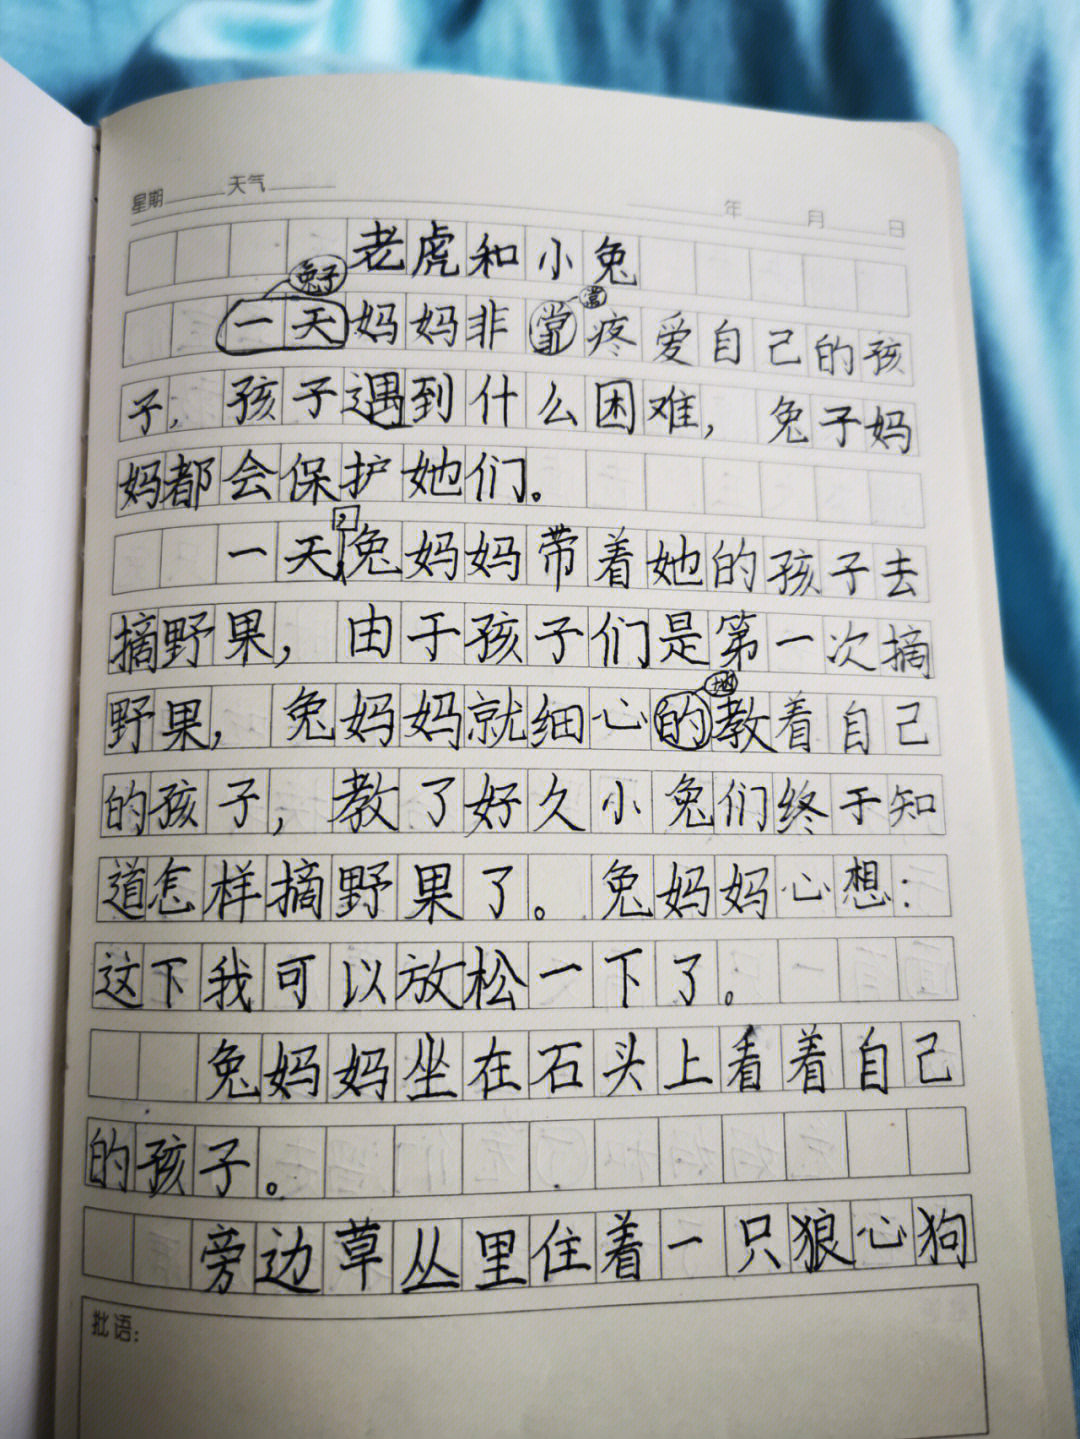 星期 天气 年 月 日
老虎和小兔
兔子 常
一天妈妈非常疼爱自己的孩
子，孩子遇到什么困难，兔子妈
妈都会保护她们。
一天，兔妈妈带着她的孩子去
摘野果，由于孩子们是第一次摘
地
野果，兔妈妈就细心的教着自己
的孩子，教了好久小兔们终于知
道怎样摘野果了。兔妈妈心想：
这下我可以放松一下了。
兔妈妈坐在石头上看着自己
的孩子。
旁边草丛里住着一只狼心狗
批语：